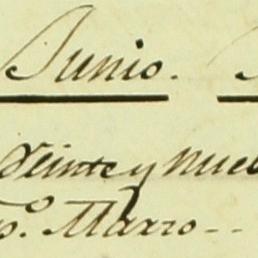 Junio.
Veinte y nue
po. Marzo--